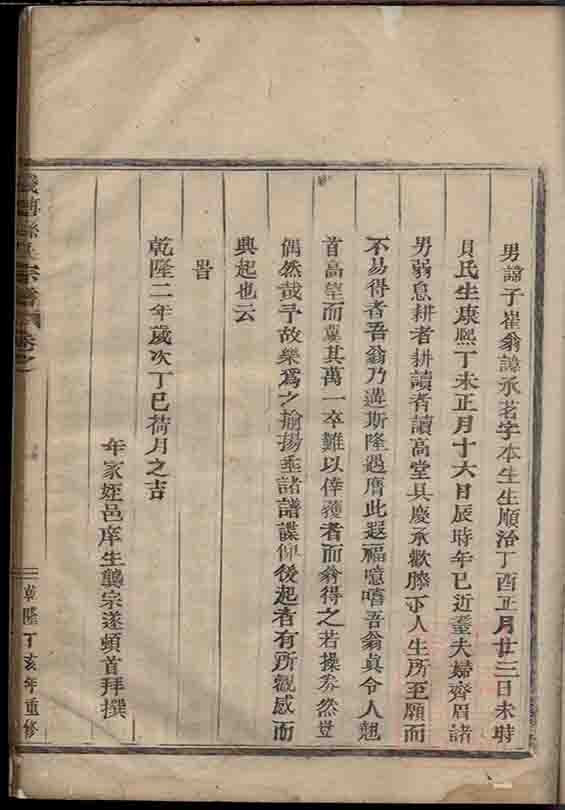 男諳子崔翁諱承茗字本生生順治丁酉正月廿三日未時
貝氏生康熙丁未正月十六日辰時年已近耋夫婦齊眉諸
男弱息耕者耕讀者讀高堂具慶承歡膝下人生所至願而
不易得者吾翁乃遘斯隆遇膺此遐福噫嘻吾翁真令人翹
首高望而冀其萬一卒難以倖獲者而翁得之若操券然豈
偶然哉予故樂為之揄揚垂諸譜諜俾後起者有所觀感而
興起也云
旹
乾隆二年歲次丁巳荷月之吉
年家姪邑庠生龔宗遂頓首拜撰
宗譜 卷之
乾隆丁亥年重修